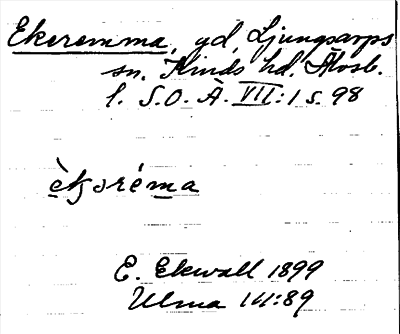 Ekeremma, gd, Ljungsarps
sn. Kinds hd. Älvsb.
l. S.O.Ä. VII:1 s. 98
èkǝréma
E. Ekwall 1899
Ulma 141:89